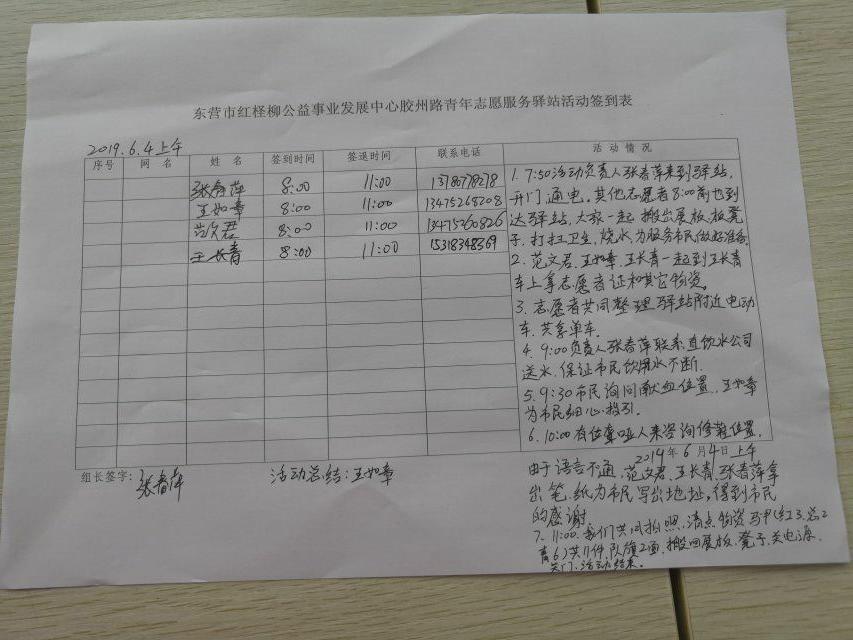 东营市红柽柳公益事业发展中心胶州路青年志愿服务驿站活动签到表
2019.6.4上午
序号 网 名 姓 名 签到时间 签退时间 联系电话 活 动 情 况
张春萍 8:00 11:00 13780778278
王如章 8:00 11:00 13475268208
范文君 8:00 11:00 13475260826
王长青 8:00 11:00 15318348369
1. 7:50活动负责人张春萍来到驿站,
开门,通电。其他志愿者8:00前也到
达驿站,大家一起搬出展板、板凳
子,打扫卫生,烧水,为服务市民做好准备
2. 范文君、王如章、王长青一起到王长青
车上拿志愿者证和其它物资。
3. 志愿者共同整理驿站附近电动
车、共享单车。
4. 9:00负责人张春萍联系直饮水公司
送水,保证市民饮用水不断.
5. 9:30市民询问献血位置,王如章
为市民细心指引.
6. 10:00有位聋哑人来咨询修鞋位置,
组长签字: 张春萍 活动总结:王如章
2019年6月4日上午
由于语言不通,范文君、王长青、张春萍拿
出笔、纸为市民写出地址,得到市民
的感谢
7. 11:00.我们共同拍照,清点物资马甲(红3.蓝2
青6)共11件,队旗2面,搬回展板、凳子,关电源
关门、活动结束.